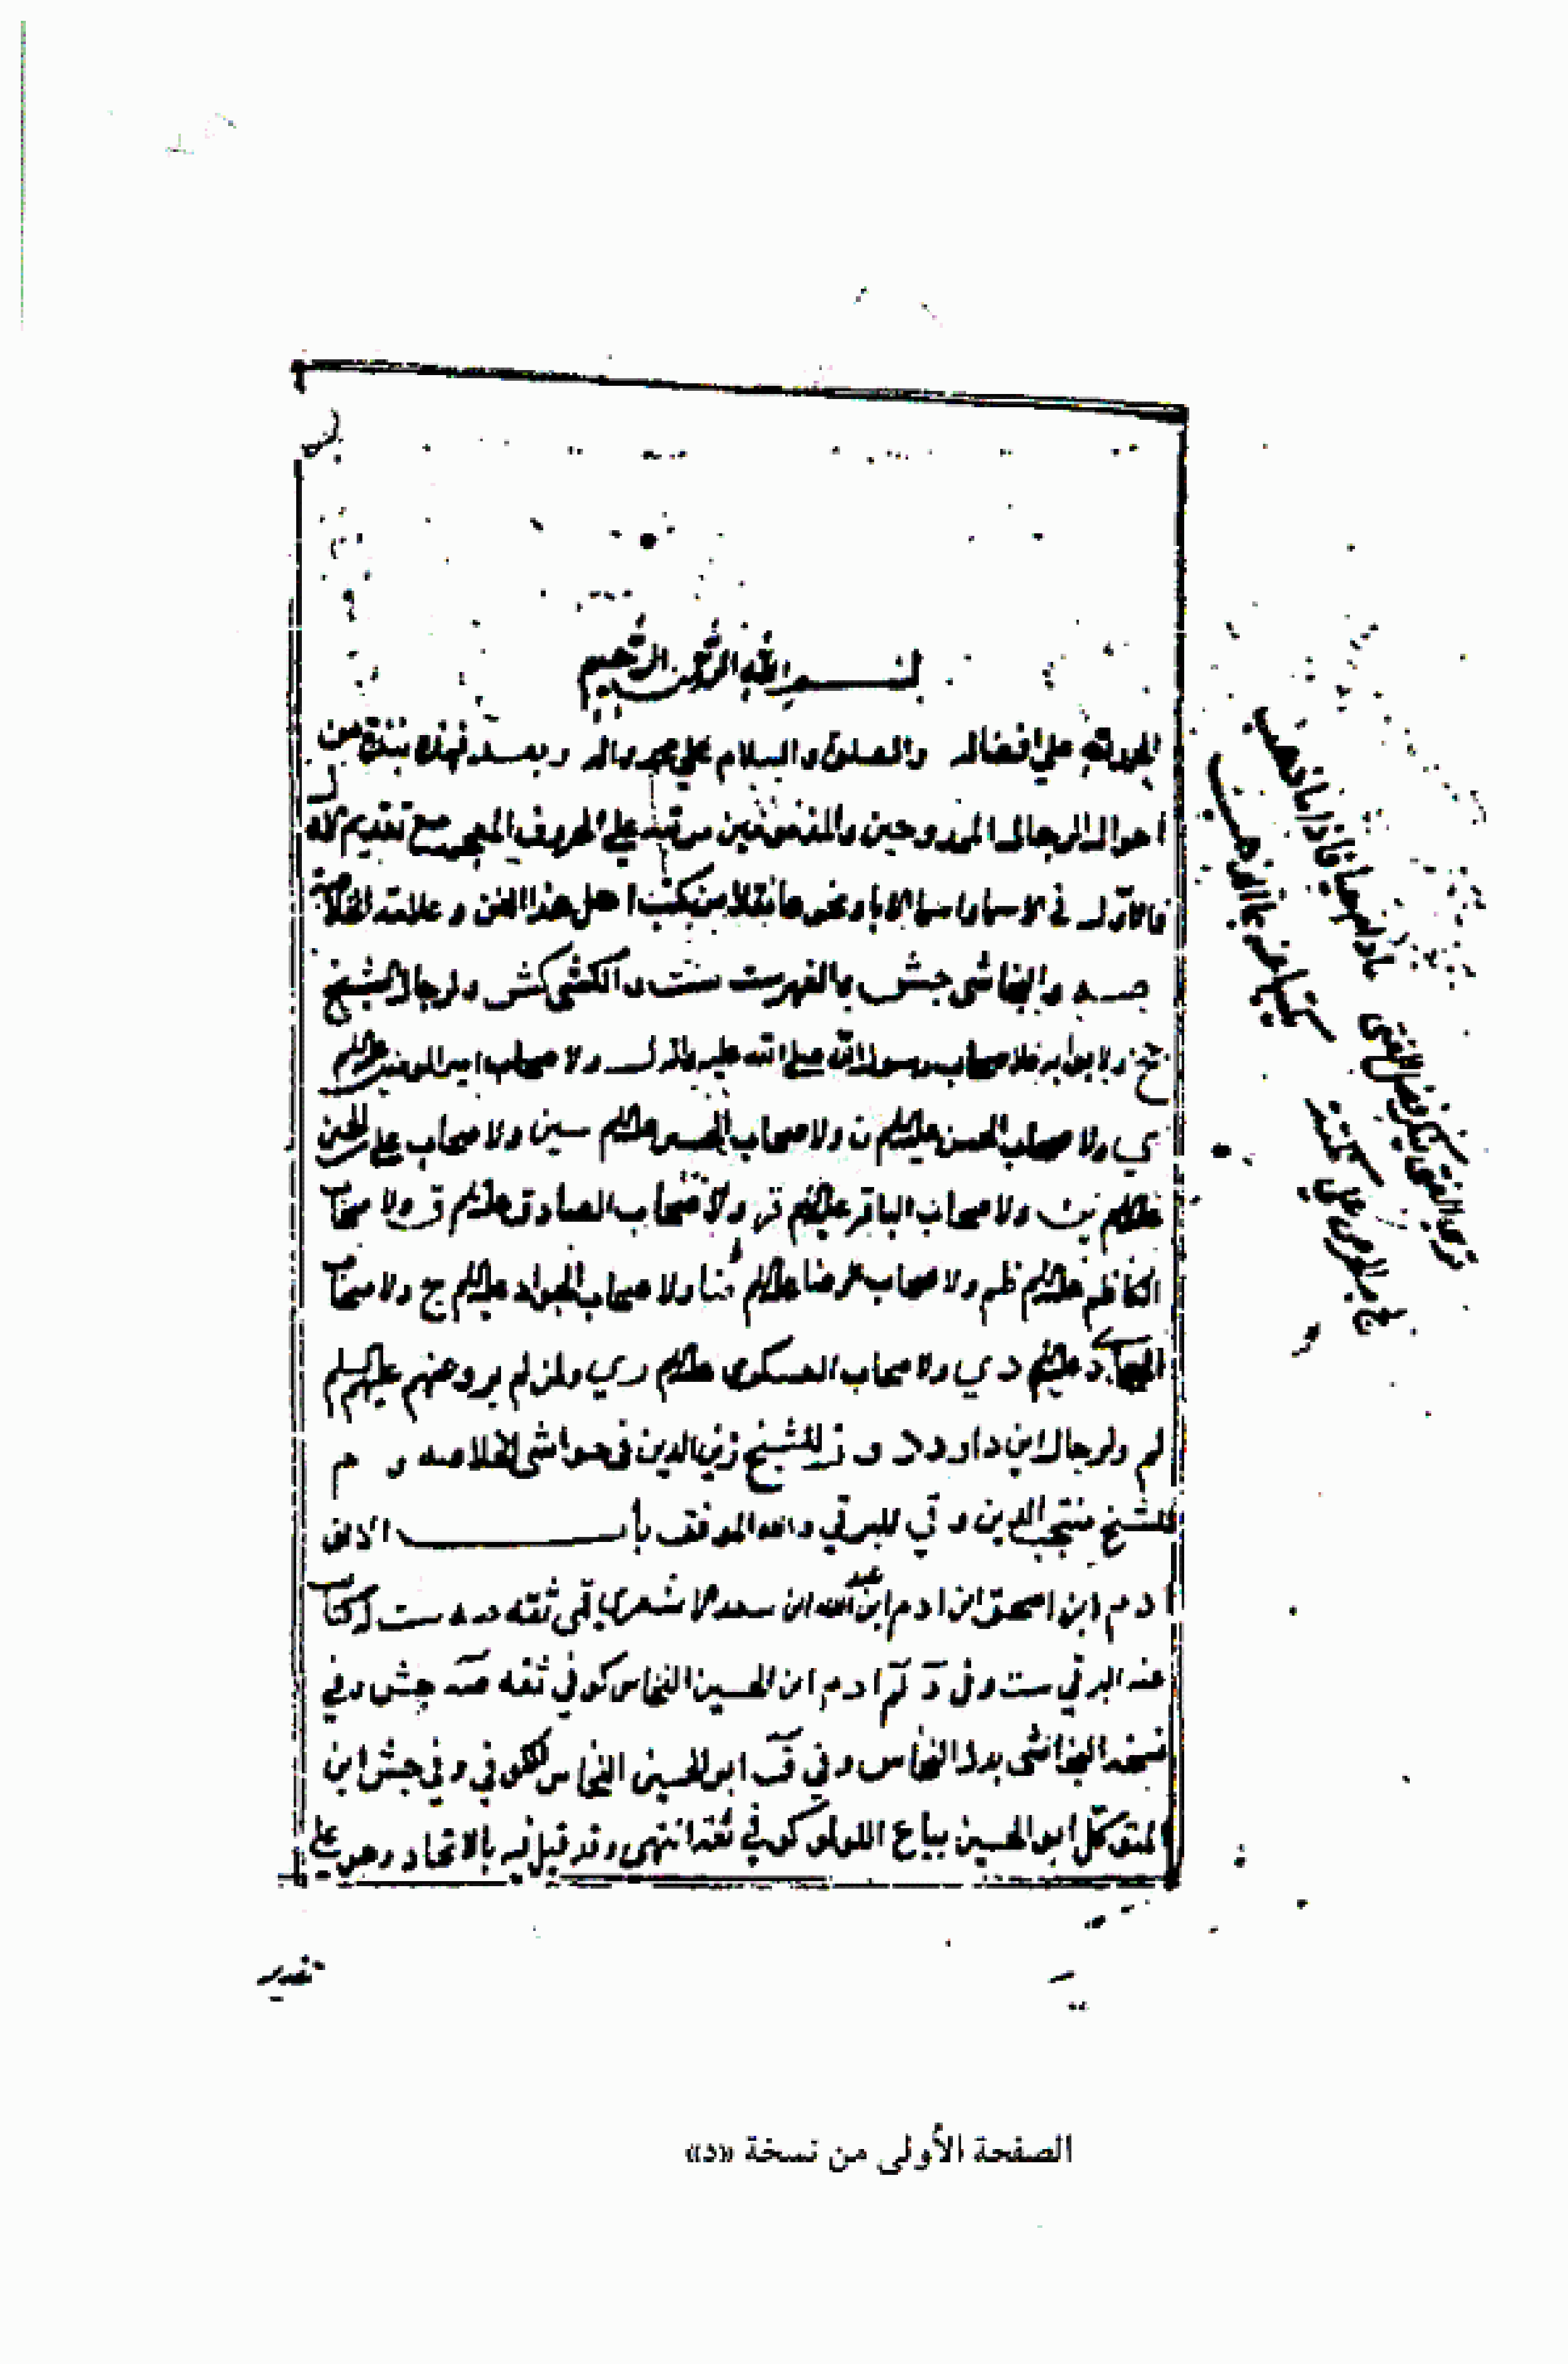 بسم الله الرحمن الرحيم
الحمد لله على افضاله والصلوة والسلام على محمد واله وبعد فهذه نبذة من
احوال الرجال الممدوحين والمذمومين مرتبه على الحروف المعجم مع تقديم الأول
فالاول في الاسما واسما الابا ونحوها نقلا من كتب اهل هذا الفن وعلامة الخلاصة
صه والنجاشى جش والفهرست ست والكشى كش ولرجال الشيخ
جخ ولابوابه فلاصحاب رسول الله صلى الله عليه واله ل ولاصحاب امير المومنين عليه السلم
ي ولاصحاب الحسن عليه السلم ن ولاصحاب الحسين عليه السلم سين ولاصحاب على بن الحسين
عليه السلم ين ولاصحاب الباقر عليه السلم قر ولاصحاب الصادق عليه السلم ق ولاصحاب
الكاظم عليه السلم ظم ولاصحاب الرضا عليه السلم ضا ولاصحاب الجواد عليه السلم ج ولاصحاب
الهادي عليه السلم دي ولاصحاب العسكرى عليه السلم ري ولمن لم يرو عنهم عليهم السلم
لم ولرجال ابن داود د و ز للشيخ زين الدين فى حواشى الخلاصه و م
للشيخ منتجب الدين و قي للبرقي والله الموفق باب الالف
ادم ابن اسحق ابن ادم ابن عبد الله ابن سعد الاشعرى قمى ثقه صه ست له كتاب
عنه البرقي ست وفى د لم ادم ابن الحسين النخاس كوفي ثقه صه جش وفي
نسخه النجاشى بدل النخاس وفي ق ابو الحسين النخاس الكوفي وفي جش ابن
المتوكل ابو الحسين بياع اللولو كوفي ثقه انتهى وقد قيل فيه بالاتحاد وهو على
تقدير
الصفحة الأولى من نسخة «د»